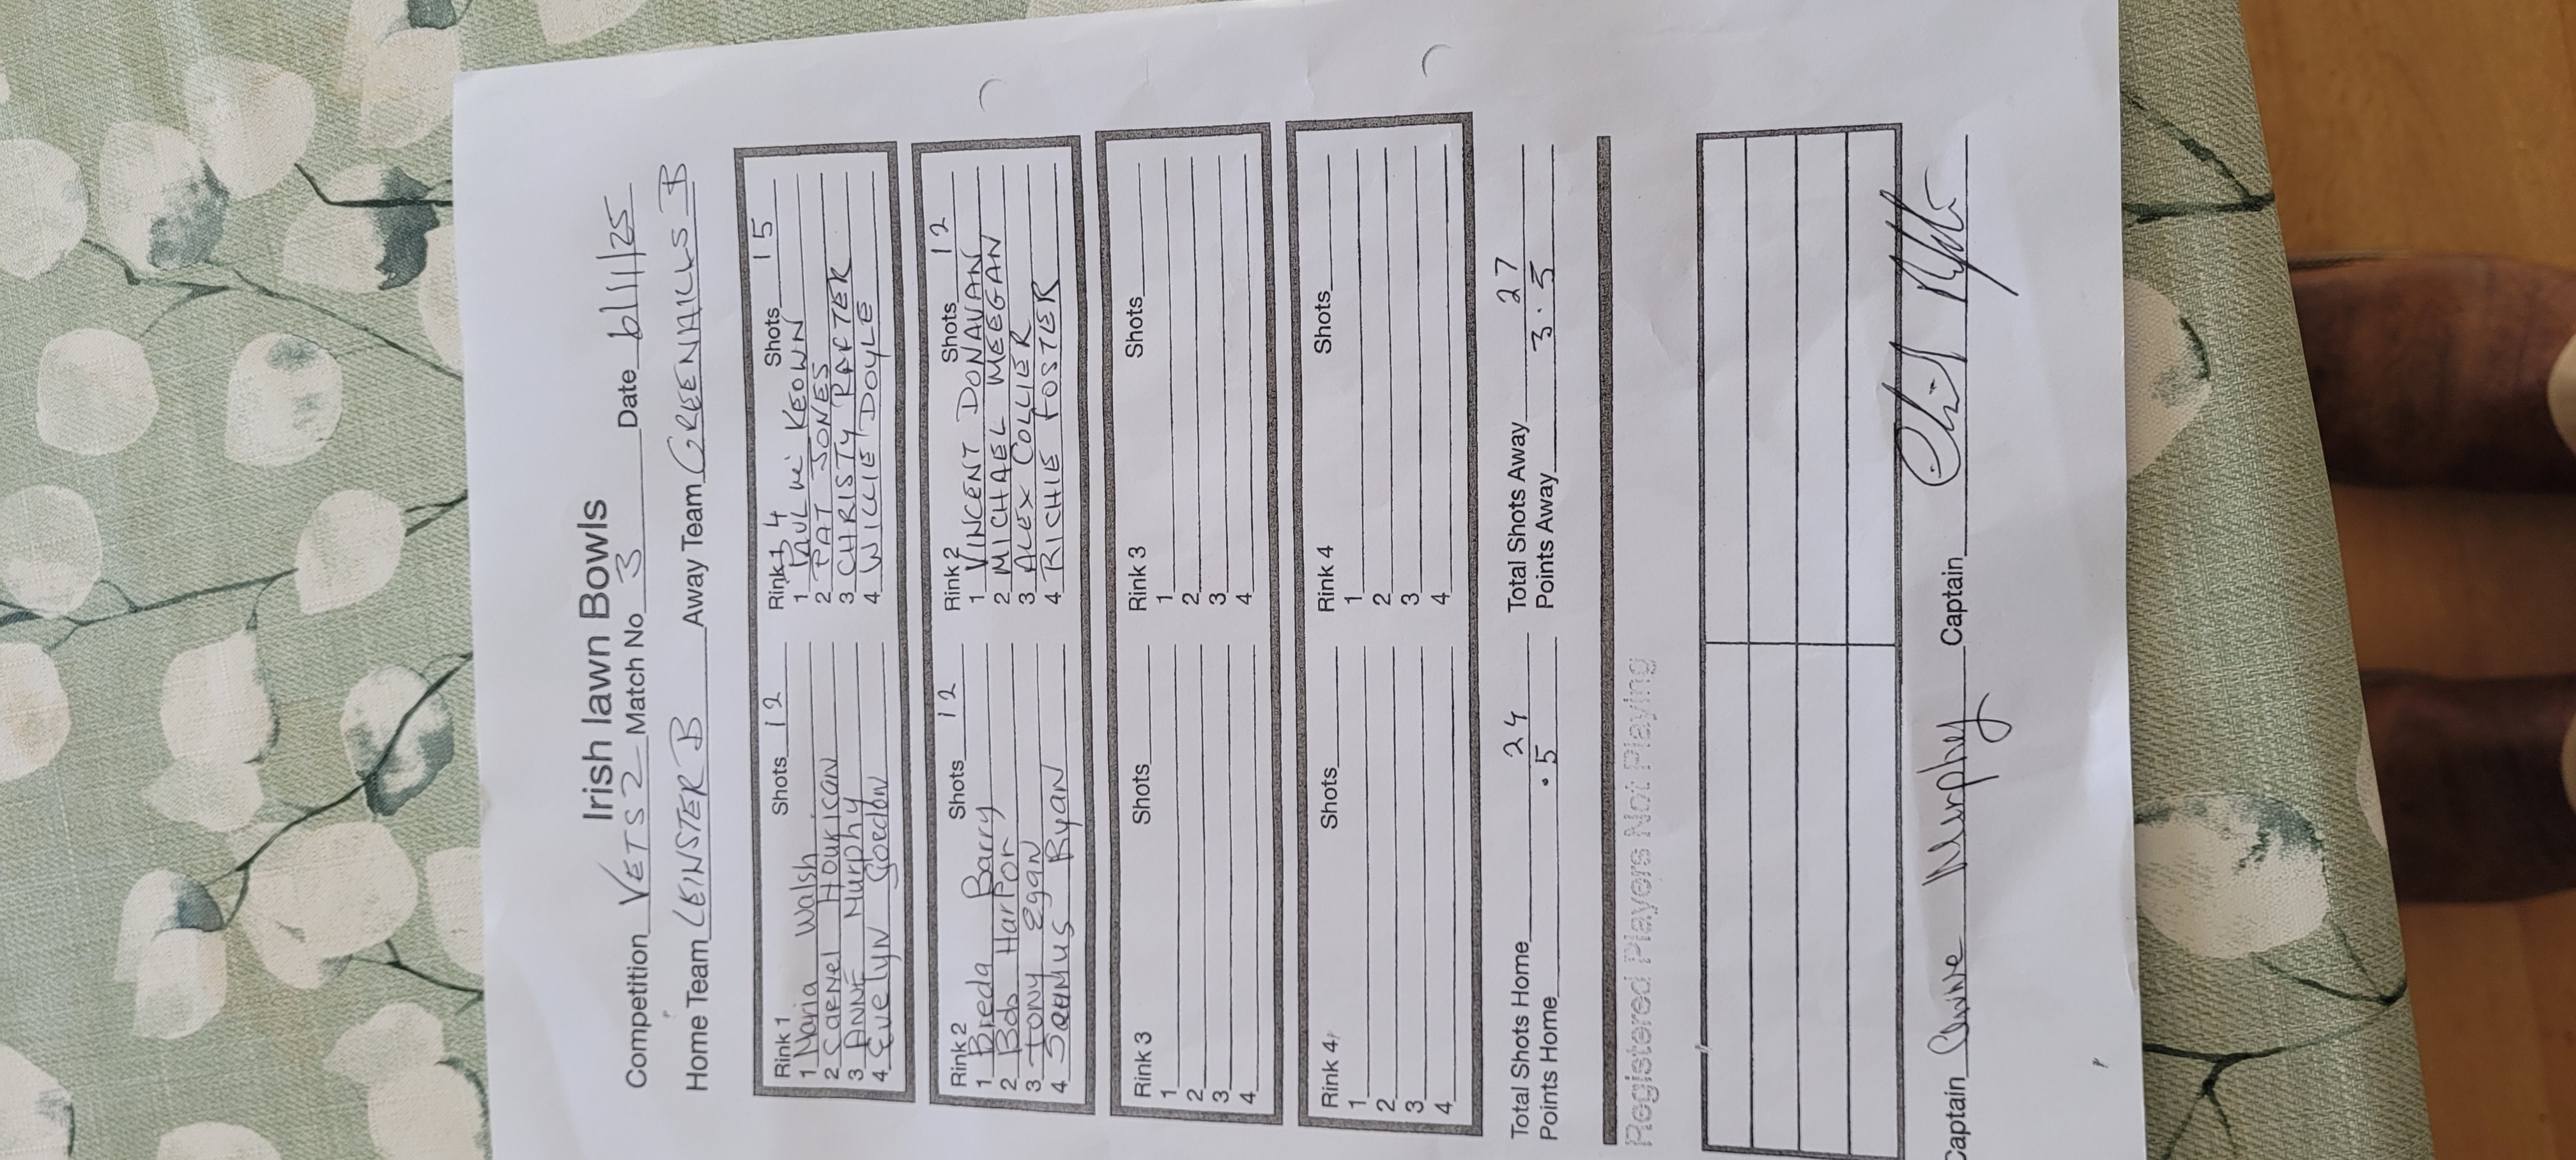 Irish lawn Bowls
Competition VETS 2 Match No 3 Date 6/11/25
Home Team LEINSTER B Away Team GREENHILLS B
Rink 1 Shots 12
1 Maria Walsh
2 CARMEL Hourican
3 ANNE Murphy
4 Evelyn Goedon
Rink 4 Shots 15
1 PAUL Mc KEOWN
2 PAT JONES
3 CHRISTY RAFTER
4 WILLIE DOYLE
Rink 2 Shots 12
1 Breda Barry
2 Bob Harpor
3 TONY Egan
4 SEAMUS Ryan
Rink 2 Shots 12
1 VINCENT DONAVAN
2 MICHAEL MEEGAN
3 ALEX COLLIER
4 RICHIE FOSTER
Rink 3 Shots
1
2
3
4
Rink 3 Shots
1
2
3
4
Rink 4 Shots
1
2
3
4
Rink 4 Shots
1
2
3
4
Total Shots Home 24 Total Shots Away 27
Points Home .5 Points Away 3.5
Registered Players Not Playing
Captain Anne Murphy Captain